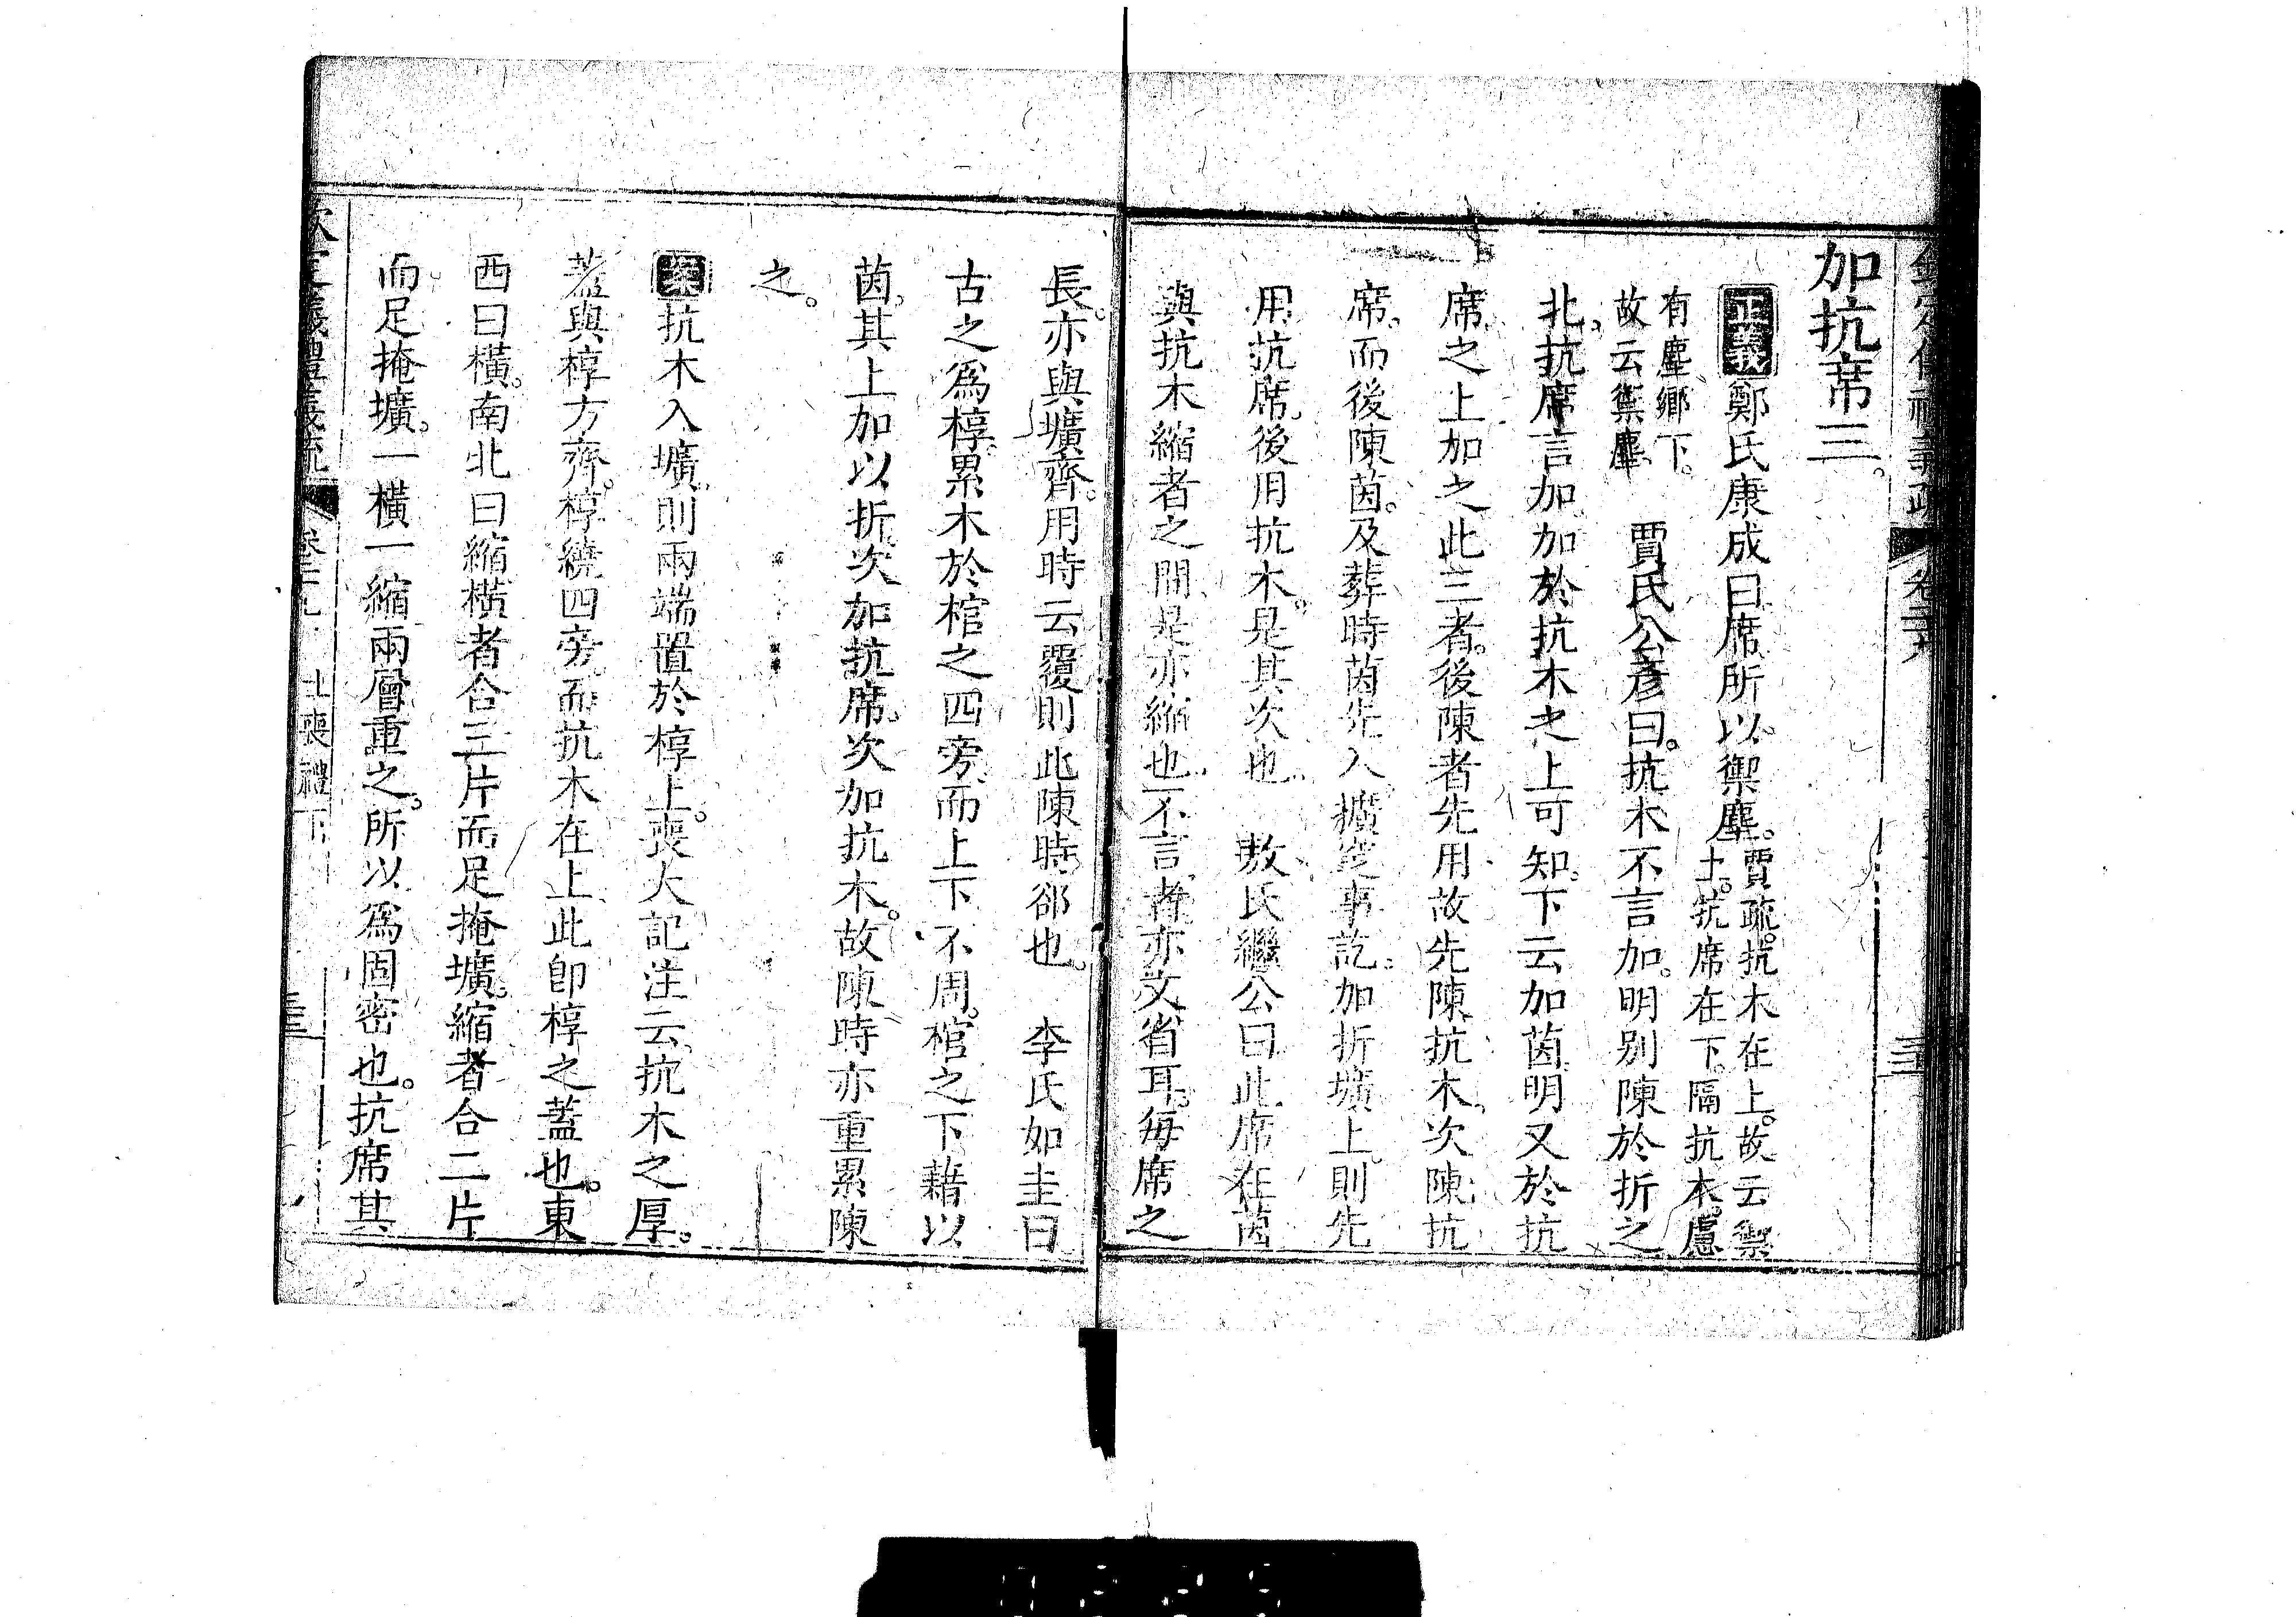 加抗席三。
正義鄭氏康成曰席所以禦塵。賈疏。抗木在上。故云禦
土。抗席在下。隔抗木。慮
有塵鄉下。
故云禦塵。
賈氏公彥曰。抗木不言加。明別陳於折之
北。抗席言加加於抗木之上可知。下云加茵明又於抗
席之上加之此三者。後陳者先用故先陳抗木。次陳抗
席。而後陳茵。及葬時茵先入壙窆事訖。加折壙上。則先
用抗席。後用抗木。是其次也。 敖氏繼公曰此席在茵
與抗木縮者之間是亦縮也。不言者亦文省耳。每席之
長。亦與壙齊。用時云覆則此陳時郤也。 李氏如圭曰
古之爲椁。累木於棺之四旁。而上下不周。棺之下藉以
茵。其上加以折。次加抗席。次加抗木。故陳時亦重累陳
之。
案抗木入壙。則兩端置於椁上。喪大記注云。抗木之厚。
蓋與椁方齊。椁繞四旁。而抗木在上此卽椁之蓋也。東
西曰橫。南北曰縮橫者合三片而足掩壙。縮者合二片
而足掩壙。一橫一縮兩層重之。所以爲固密也。抗席其
欽定儀禮義疏 士喪禮下